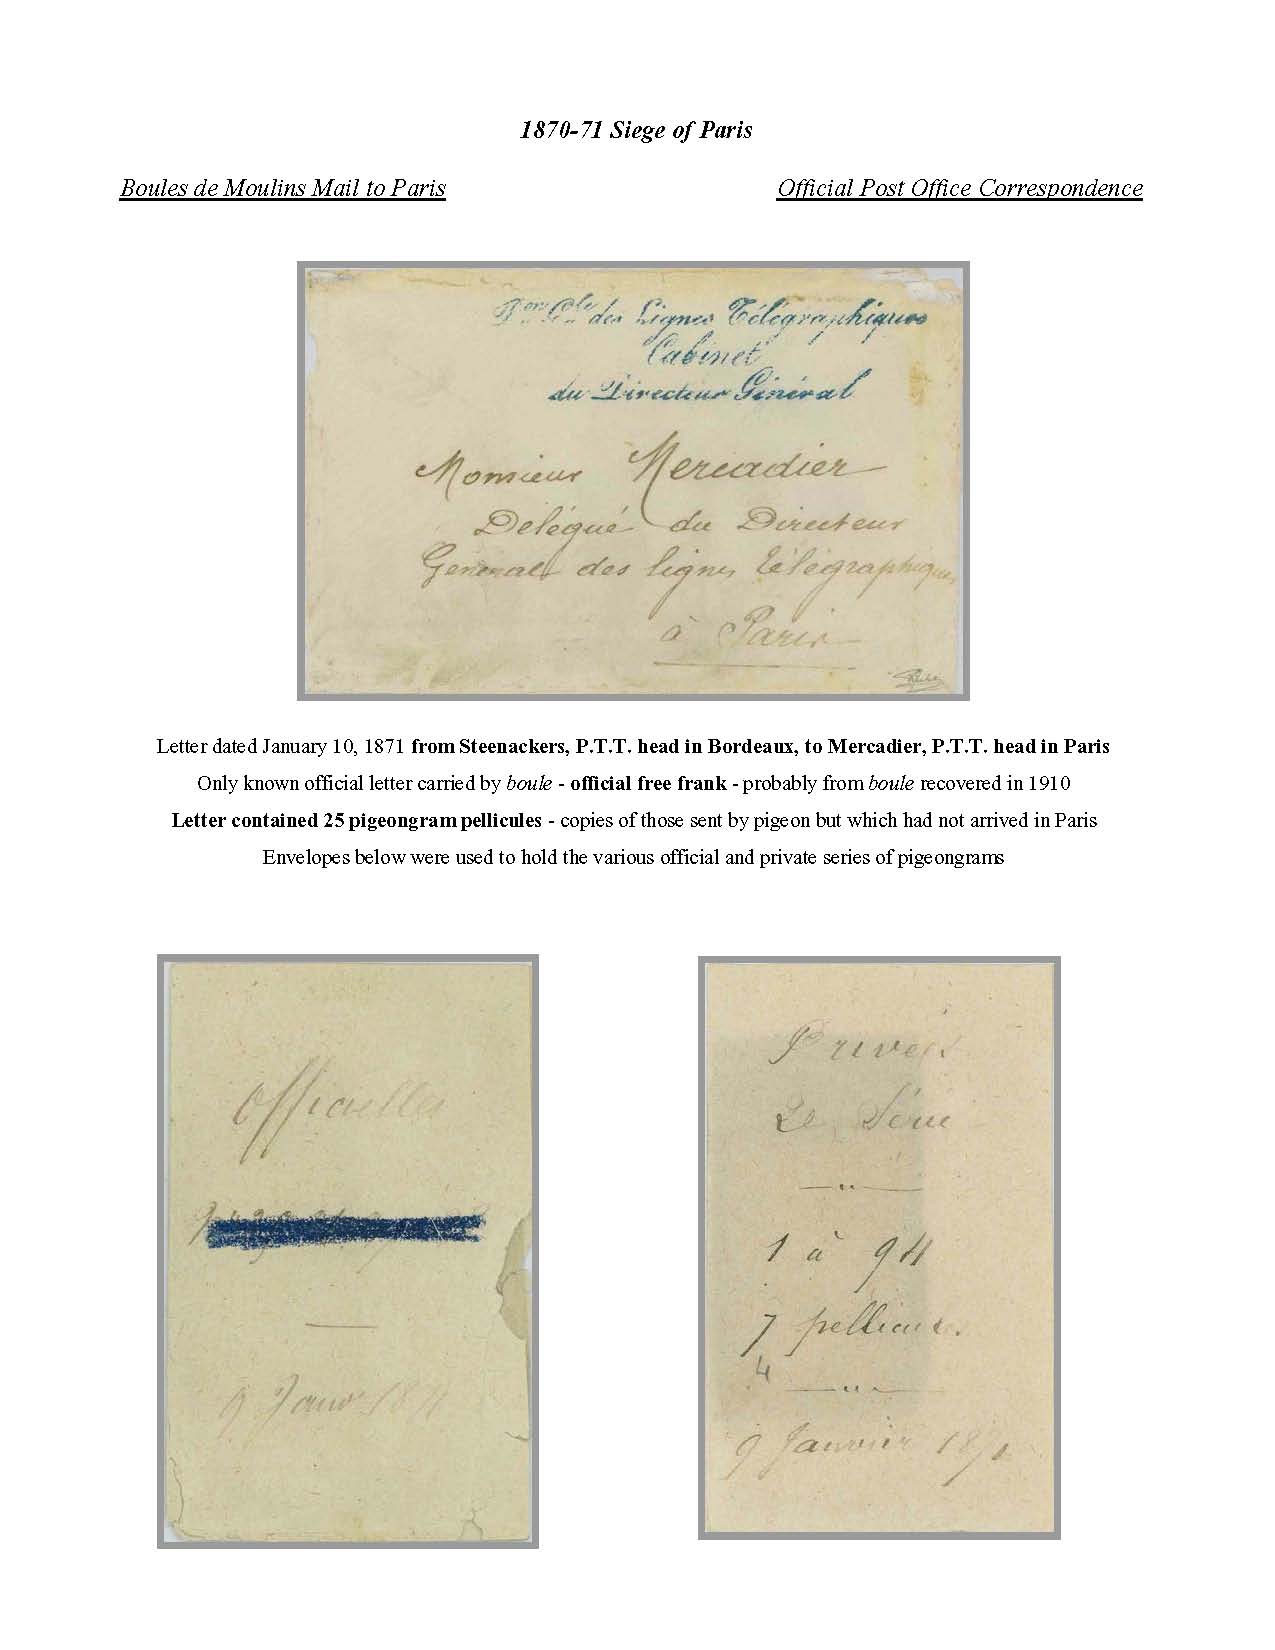 1870-71 Siege of Paris
Boules de Moulins Mail to Paris
Official Post Office Correspondence
Don Gle des Lignes Télégraphiques
Cabinet
du Directeur Général
Monsieur Mercadier
Délégué du Directeur
Général des lignes télégraphiques
à Paris
Letter dated January 10, 1871 from Steenackers, P.T.T. head in Bordeaux, to Mercadier, P.T.T. head in Paris
Only known official letter carried by boule - official free frank - probably from boule recovered in 1910
Letter contained 25 pigeongram pellicules - copies of those sent by pigeon but which had not arrived in Paris
Envelopes below were used to hold the various official and private series of pigeongrams
Officielles
9 Janv 1871
Privées
2e Série
1 à 94
7 pellicules.
4
9 Janvier 1871